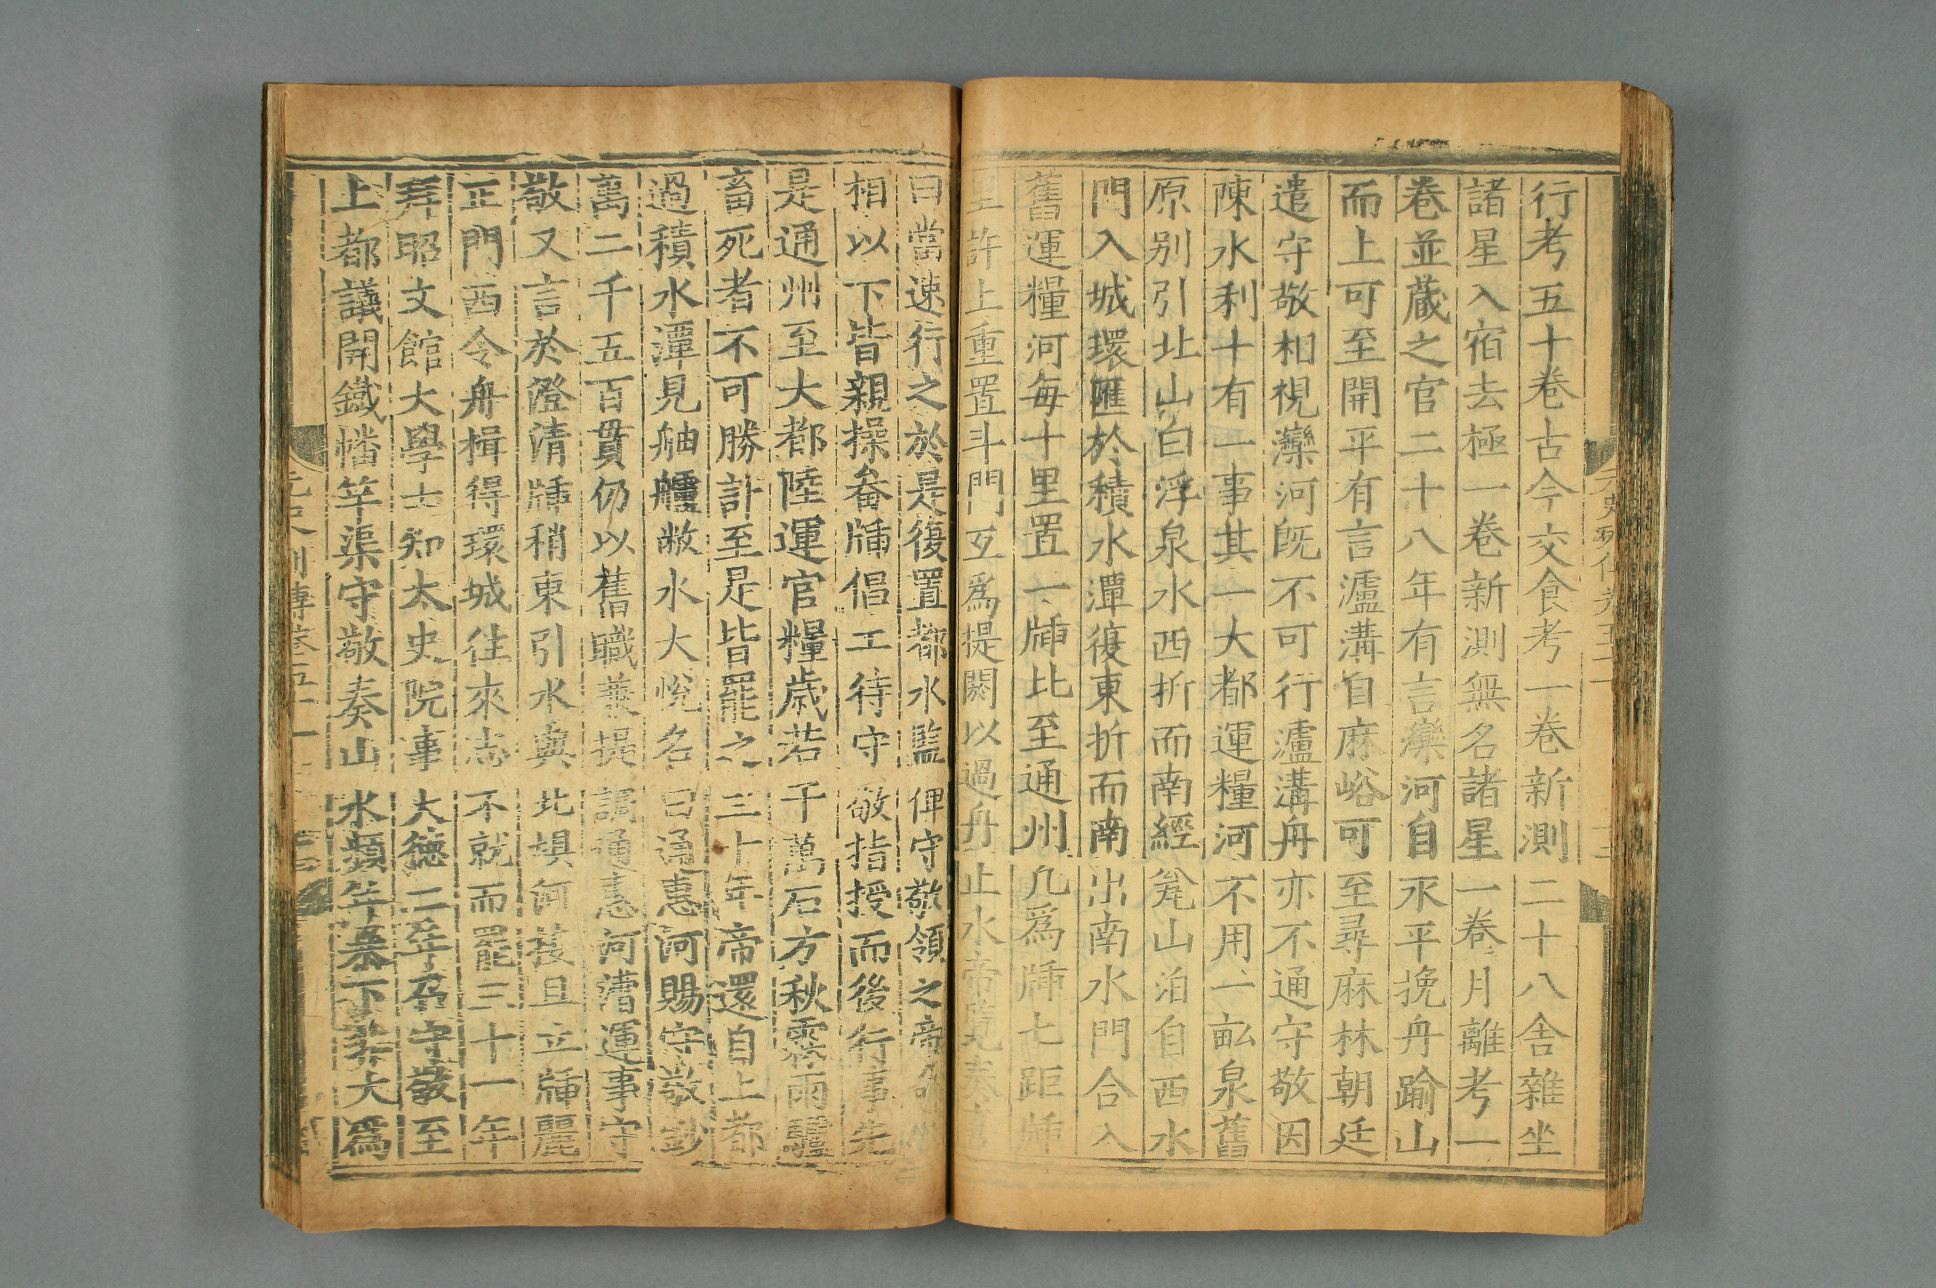 行考五十卷古今交食考一卷新測二十八舍雜坐
諸星入宿去極一卷新測無名諸星一卷月離考一
卷並藏之官二十八年有言灤河自永平挽舟踰山
而上可至開平有言瀘溝自麻峪可至尋麻林朝廷
遣守敬相視灤河既不可行瀘溝舟亦不通守敬因
陳水利十有一事其一大都運糧河不用一畝泉舊
原别引北山白浮泉水西折而南經瓮山泊自西水
門入城環匯於積水潭復東折而南出南水門合入
舊運糧河每十里置一牐比至通州凡爲牐七距牐
里許上重置斗門互爲提閼以過舟止水帝覽奏
曰當速行之於是復置都水監俾守敬領之帝命
相以下皆親操畚牐倡工待守敬指授而後行事先
是通州至大都陸運官糧歲若干萬石方秋霖雨驢
畜死者不可勝計至是皆罷之三十年帝還自上都
過積水潭見舳艫敝水大悅名曰通惠河賜守敬鈔
萬二千五百貫仍以舊職兼提調通惠河漕運事守
敬又言於澄清牐稍東引水與北埧河接且立牐麗
正門西令舟楫得環城往來志不就而罷三十一年
拜昭文館大學士知太史院事大德二年召守敬至
上都議開鐵幡竿渠守敬奏山水頻年暴下非大爲
元史列傳卷五十一